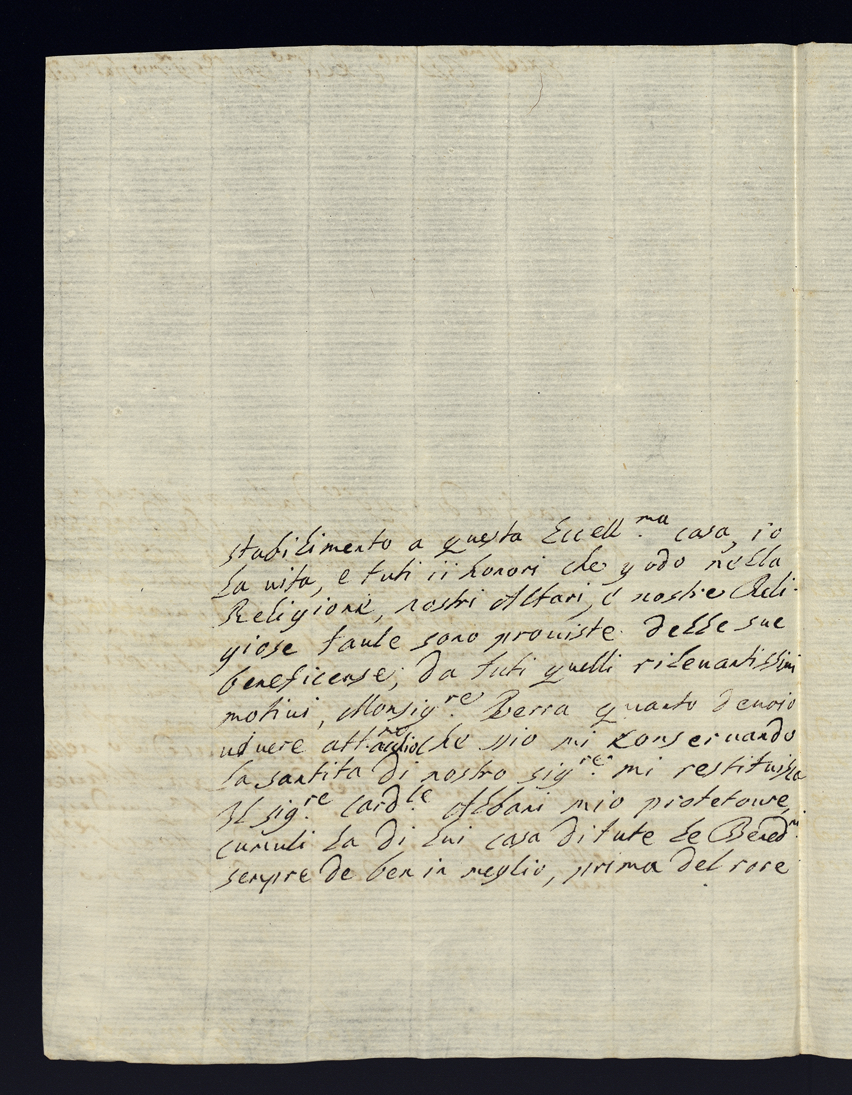 stabilimento a questa Eccell.ma casa, io
la vita, e tuti ii honori che godo nella
Religione, nostri Altari, e nostre Reli-
giose taule sono proviste delle sue
beneficense; da tuti quelli rilevantissimi
motivi, Monsig.re Berra quanto devoio
vivere che Dio mi conservando
la santita di nostro sig.re mi restituisca
Il sig.re Card.le Albani mio protetoure,
cumuli la di lui casa di tute le Bened.ni
sempre de ben in meglio, prima del rore